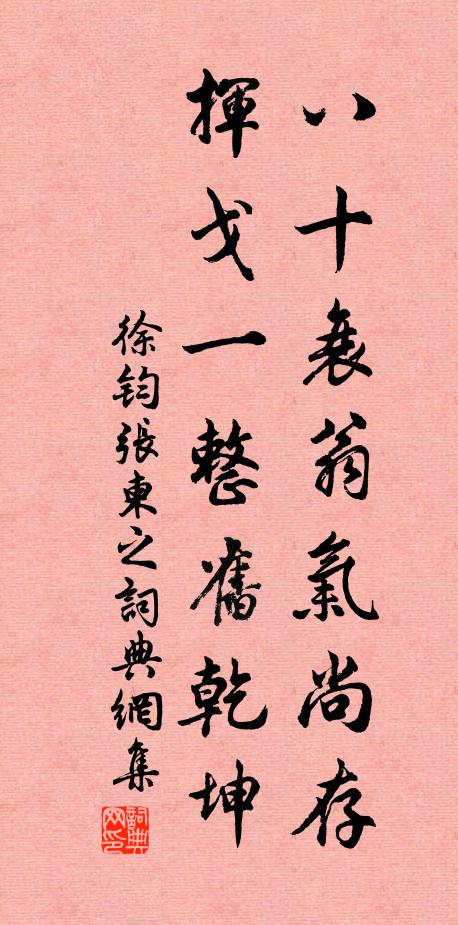 八十衰翁氣尚存
揮戈一整舊乾坤
徐鈞張東之詞典網集
詞典网印